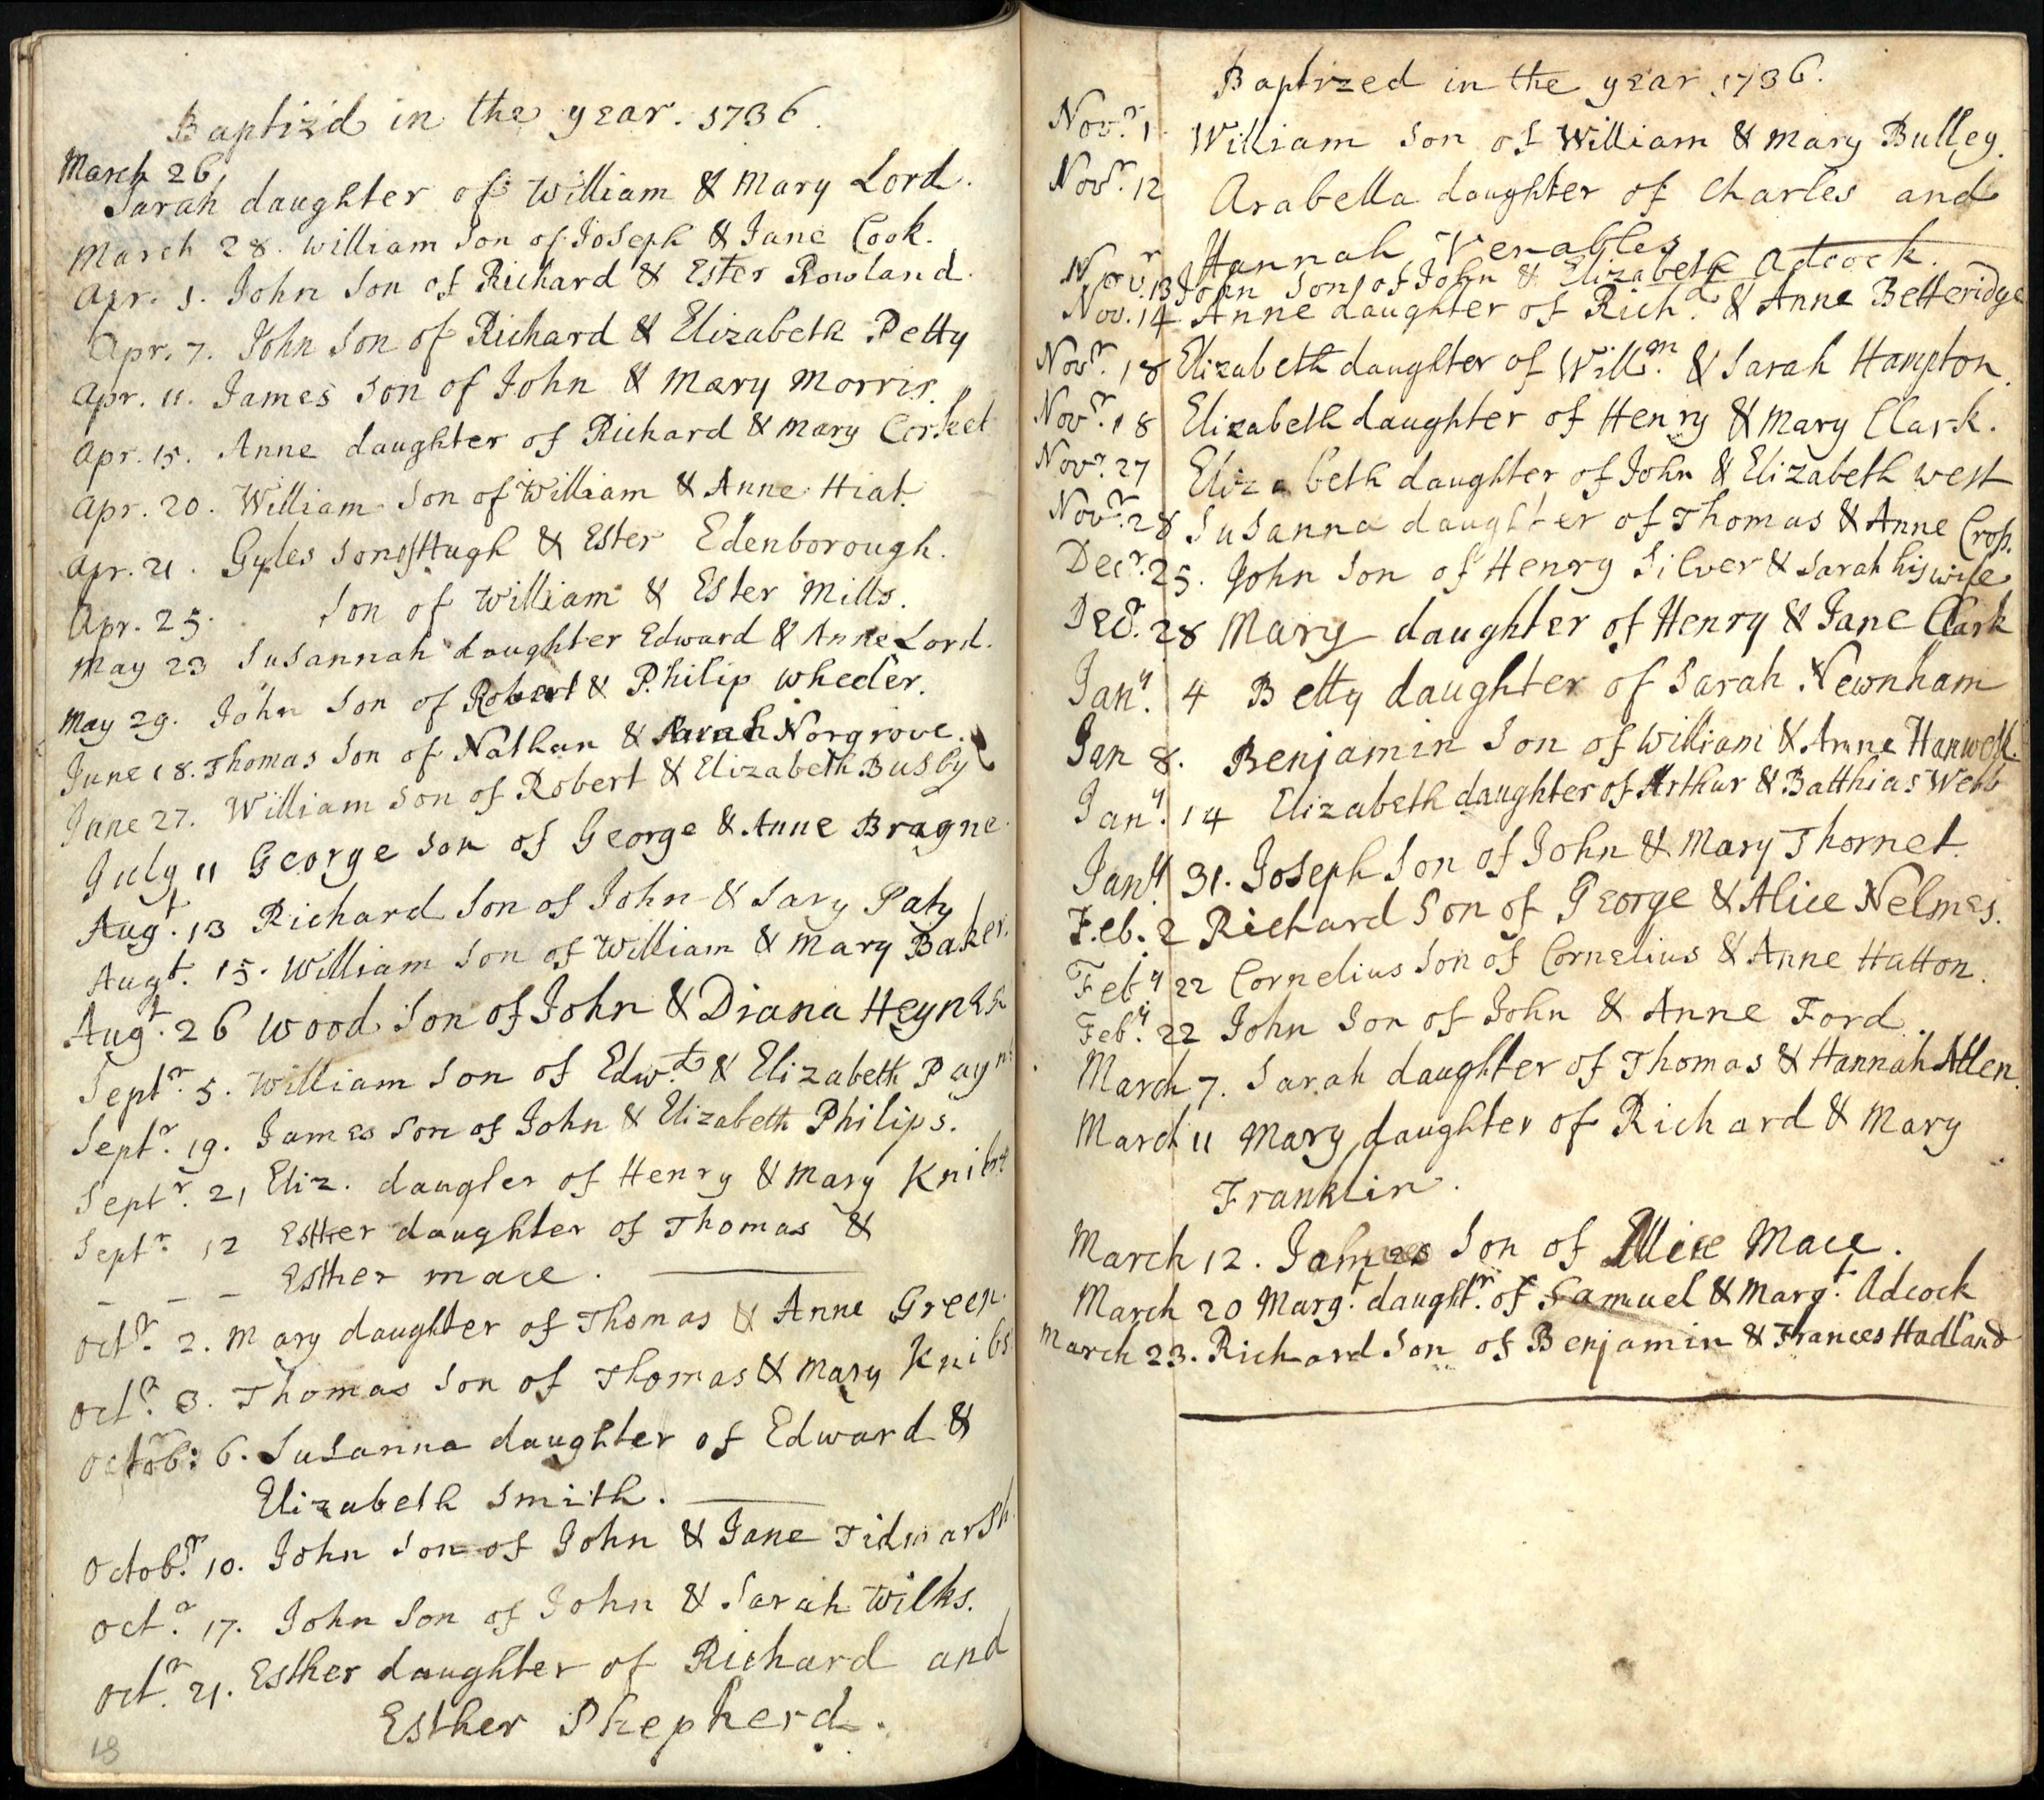 Baptiz'd in the year. 1736.
March 26
Sarah daughter of William & Mary Lord.
March 28. William Son of Joseph & Jane Cook.
Apr. 1. John Son of Richard & Ester Rowland.
Apr. 7. John Son of Richard & Elizabeth Petty
Apr. 11. James Son of John & Mary Morris.
Apr. 15. Anne daughter of Richard & Mary
Apr. 20. William Son of William & Anne Hiat.
Apr. 21. Gyles Son of Hugh & Ester Edenborough.
Apr. 25. Son of William & Ester Mills.
May 23 Susannah daughter Edward & Anne Lord.
May 29. John Son of Robert & Philip Wheeler.
June 18. Thomas Son of Nathan & Sarah Norgrove.
June 27. William Son of Robert & Elizabeth Busby
July 11 George Son of George & Anne Bragne
Augt. 13 Richard Son of John & Sary Paty
Augt. 15. William Son of William & Mary Baker.
Augt. 26 Wood Son of John & Diana Heynes
Septr. 5. William Son of Edwd. & Elizabeth Payne
Septr. 19. James Son of John & Elizabeth Philips.
Septr. 21 Eliz. daugter of Henry & Mary Knibs
Septr. 12 Esther daughter of Thomas &
Esther Mace.
Octr. 2. Mary daughter of Thomas & Anne Green.
Octr. 3. Thomas Son of Thomas & Mary Knibs
Octobr: 6. Susanna daughter of Edward &
Elizabeth Smith.
Octobr. 10. John Son of John & Jane Tidmarsh
Octr. 17. John Son of John & Sarah Wilks.
Octr. 21. Esther daughter of Richard and
Esther Shepherd.
18
Baptized in the year 1736.
Novr. 1 William Son of William & Mary Bulley.
Novr. 12 Arabella daughter of Charles and
Hannah Venables
Novr. 13 John Son of John & Elizabeth Adcock.
Nov. 14 Anne daughter of Richd. & Anne Betteridge
Novr. 18 Elizabeth daughter of Willm. & Sarah Hampton.
Novr. 18 Elizabeth daughter of Henry & Mary Clark.
Novr. 27 Elizabeth daughter of John & Elizabeth West
Novr. 28 Susanna daughter of Thomas & Anne Cross.
Decr. 25. John Son of Henry Silver & Sarah his wife
Decr. 28 Mary daughter of Henry & Jane Clark
Jany. 4 Betty daughter of Sarah Newnham
Jan 8. Benjamin Son of William & Anne Hanwell.
Jany. 14 Elizabeth daughter of Arthur & Batthias Webb
Jany. 31. Joseph Son of John & Mary Thornet.
Feb. 2 Richard Son of George & Alice Nelmes.
Feby. 22 Cornelius Son of Cornelius & Anne Hatton.
Feby. 22 John Son of John & Anne Ford.
March 7. Sarah daughter of Thomas & Hannah Allen.
March 11 Mary daughter of Richard & Mary
Franklin.
March 12. James Son of Alice Mace.
March 20 Margt. daughtr. of Samuel & Margt. Adcock
March 23. Richard Son of Benjamin & Frances Hadland